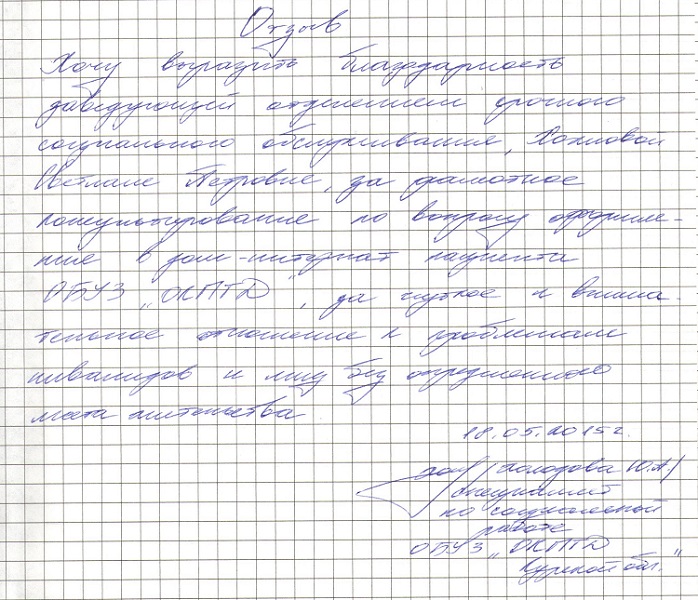 Отзыв
Хочу выразить благодарность
заведующей отделением срочного
социального обслуживания, Хохловой
Светлане Петровне, за грамотное
консультирование по вопросу оформле-
ния в дом-интернат пациента
ОБУЗ „ОКПТД", за чуткое и внима-
тельное отношение к проблемам
инвалидов и лиц без определенного
места жительства.
18.05.2015г.
/Холодова Ю.А./
специалист
по социальной
работе
ОБУЗ „ОКПТД
Курской обл."